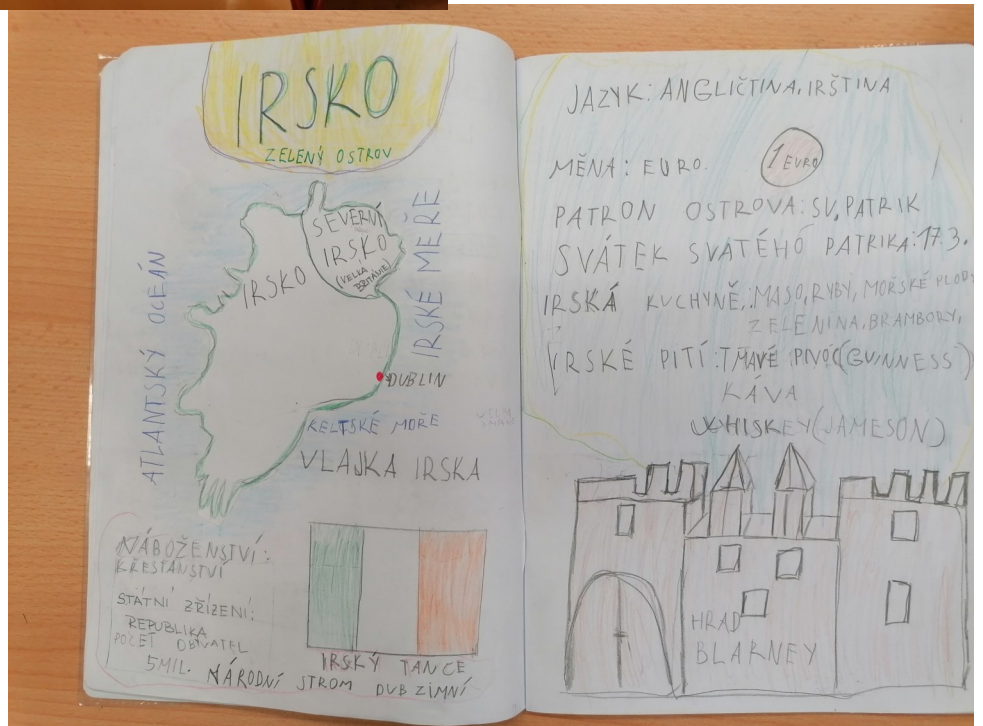 IRSKO
ZELENÝ OSTROV
SEVERNÍ
IRSKO
(VELKÁ
BRITÁNIE)
IRSKO
ATLANTSKÝ OCEÁN
IRSKÉ MEŘE
DUBLIN
KELTSKÉ MOŘE
VLAJKA IRSKA
NÁBOŽENSTVÍ:
KŘESŤANSTVÍ
STÁTNÍ ZŘÍZENÍ:
REPUBLIKA
POČET OBYVATEL
5MIL.
IRSKÝ TANCE
NÁRODNÍ STROM DUB ZIMNÍ
JAZYK: ANGLIČTINA, IRŠTINA
MĚNA: EURO.
1 EURO
PATRON OSTROVA: SV. PATRIK
SVÁTEK SVATÉHO PATRIKA: 17.3.
IRSKÁ KUCHYNĚ: MASO, RYBY, MOŘSKÉ PLODY
ZELENINA, BRAMBORY,
IRSKÉ PITÍ: TMAVÉ PIVO (GUINNESS)
KÁVA
WHISKEY (JAMESON)
HRAD
BLARNEY